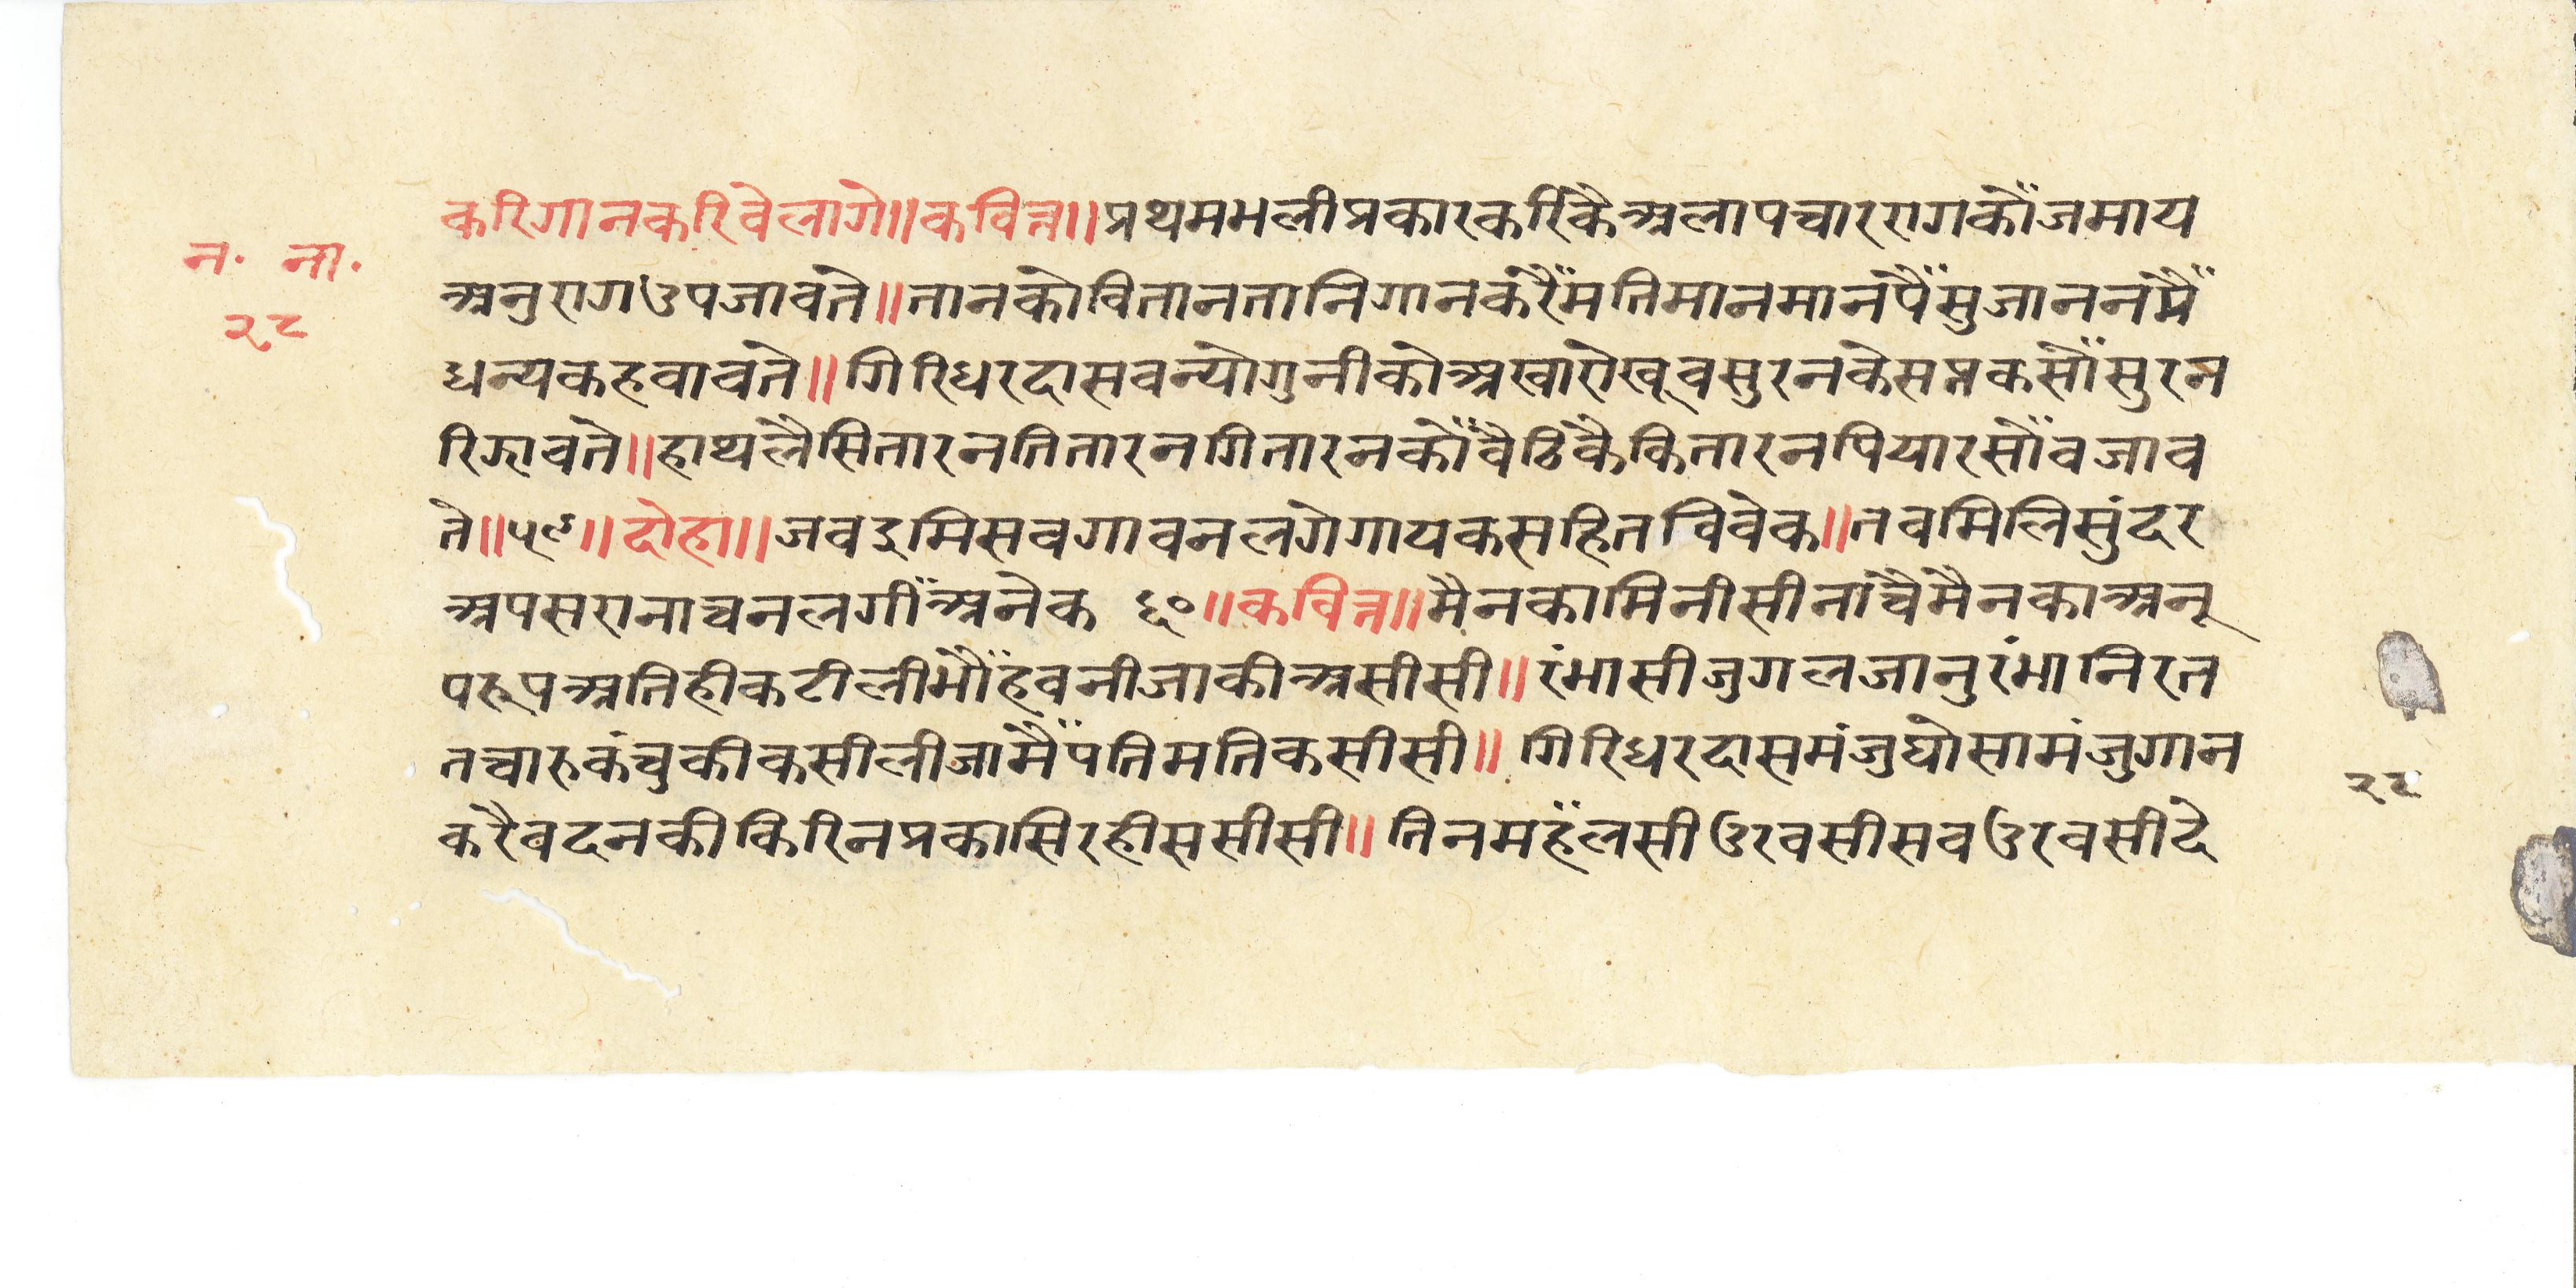 करिगानकरिवेलागे॥कवित्त॥प्रथमभलीप्रकारकरिकैंअलापच्चाररागकौंजमाय
न॰ ना॰
अनुरागउपजावते॥तानकोवितानतानिगानकरैंमतिमानमानपैंसुजाननप्रैं
२८
धन्यकहवावते॥गिरिधरदासवन्योगुनीकोअखारोखूवसुरनकेसप्तकसोंसुरन
रिझावते॥हाथलैसितारनतितारनगितारनकौंवैठिकैंकितारनपियारसोंवजाव
ते॥५९॥दोहा॥जवइमिसवगावनलगेगायकसहितविवेक॥तवमिलिसुंदर
अपसरानाचनलगींअनेक ६०॥कवित्त॥मैनकामिनीसीनांचैमैनकाअनू
परूपअतिहीकटीलीभौंहवनीजाकीअसीसी॥रंभासीजुगलजानुरंभानिरत
तचारुकंचुकीकसीलीजामैंपतिमतिकसीसी॥ गिरिधरदासमंजुघोसामंजुगान
२८
करैवदनकीकिरिनप्रकासिरहीससीसी॥ तिनमहँलसीउरवसीसवउरवसीदे